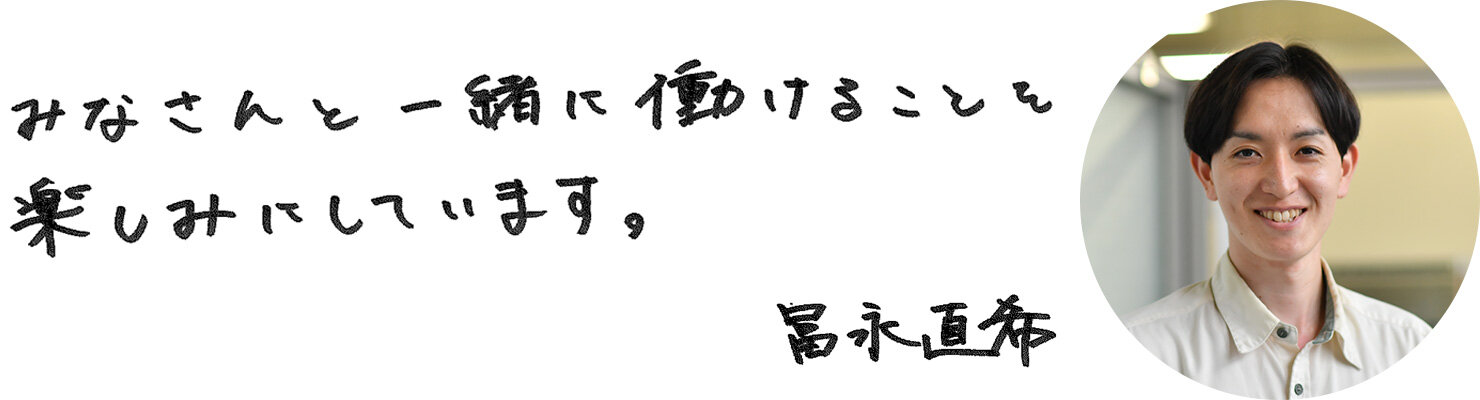 みなさんと一緒に働けることを
楽しみにしています。
冨永直希